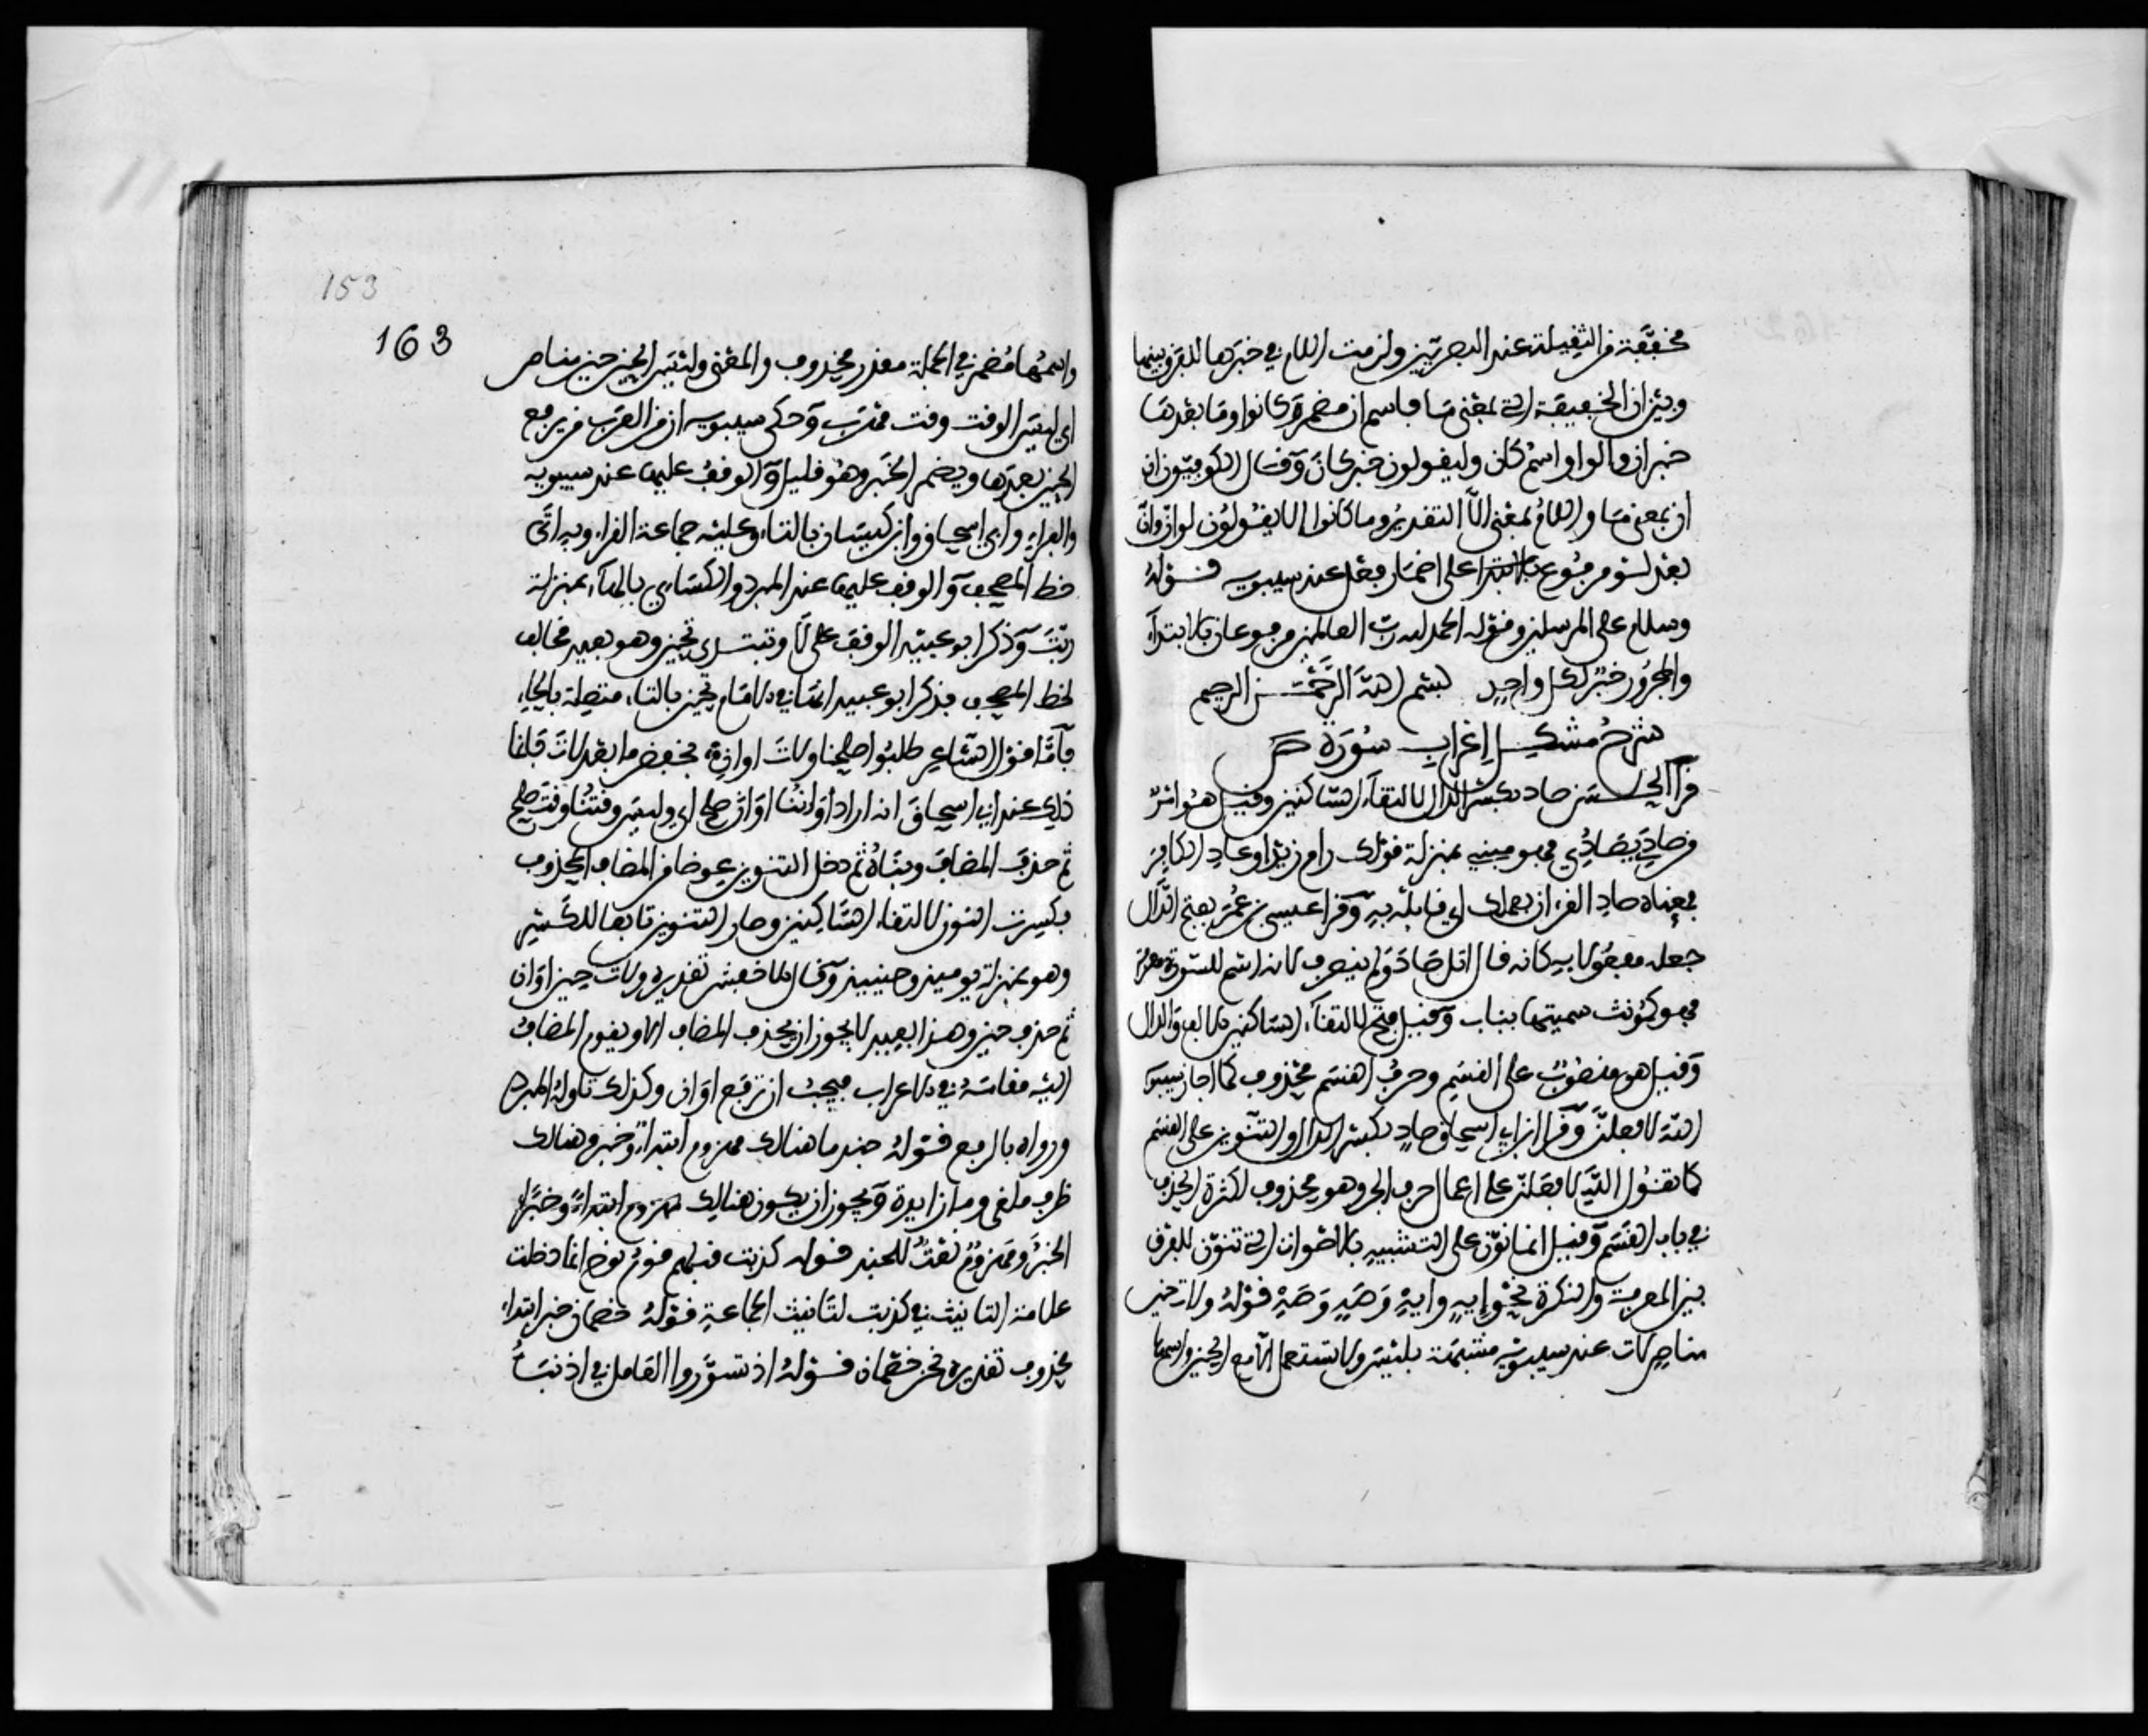 مخففة من الثقيلة عند البصريين ولزمت اللام في خبرها للفرق بينها
وبين ان الخفيفة التي بمعنى ما فاسم ان مضمر وكانوا وما بعدها
خبر ان والواو اسم كان وليقولون خبر كان وقال الكوفيون ان
ان بمعنى ما واللام بمعنى الا التقدير وما كانوا الا يقولون لو ان وان
بعد لو مرفوع بالابتدا على اضمار فعل عند سيبويه قوله
وسلام على المرسلين وقوله الحمد لله رب العالمين مرفوعان بالابتدآء
والمجرور خبر لكل واحد بسم الله الرحمن الرحيم
شرح مشكل إعراب سورة ص
قرأ الحسن صاد بكسر الدال لالتقاء الساكنين وقيل هو امر
من صادى يصادي فهو مبني بمنزلة قولك رام زيدا وعاد الكافر
فمعناه صاد القرءان بعملك اي قابله به وقرا عيسى بن عمر بفتح الدال
جعله مفعولا به كانه قال اتل صاد ولم ينصرف لانه اسم للسورة معرفة
فهو كمؤنث سميتها بباب وقيل فتح لالتقاء الساكنين الالف والدال
وقيل هو منصوب على القسم وحرف القسم محذوف كما اجاز سيبويه
الله لافعلن وقرا ابن ابي اسحاق صاد بكسر الدال والتنوين على القسم
كما تقول الله لافعلن على اعمال حرف الجر وهو محذوف لكثرة الحذف
في باب القسم وقيل انما نون على التشبيه بالاصوات التي تنون للفرق
بين المعرفة والنكرة نحو إيه وايه وصه وصه قوله ولات حين
مناص لات عند سيبويه مشبهة بليس ولا تستعمل الا مع الحين واسمها
163
163
واسمها مضمر في الجملة مقدر محذوف والمعنى وليس الحين حين مناص
اي ليس الوقت وقت مهرب وحكى سيبويه ان من العرب من يرفع
الحين بعدها ويضمر الخبر وهو قليل والوقف عليها عند سيبويه
والفراء وابي اسحاق وابن كيسان بالتاء وعليه جماعة القراء وبه اتى
خط المصحف والوقف عليها عند المبرد والكسائي بالهاء بمنزلة
ربت وذكر ابو عبيد الوقف على لا وتبتدئ تحين وهو بعيد مخالف
لخط المصحف فذكر ابو عبيد انها في الامام تحين بالتاء متصلة بالحاء
فأما قول الشاعر طلبوا صلحنا ولات اوان فخفض ما بعد لات فانما
ذلك عند ابي اسحاق انه اراد اواننا اوان صلح اي وليس وقتنا وقت صلح
ثم حذف المضاف وبناه ثم دخل التنوين عوضا من المضاف المحذوف
فكسرت النون لالتقاء الساكنين وصار التنوين تابعا للكسر
وهو بمنزلة يوميذ وحينيذ وقال الاخفش تقديره ولات حين اوان
ثم حذف حين وهذا بعيد لا يجوز ان يحذف المضاف الا ويقوم المضاف
اليه مقامه في الاعراب فيجب ان ترفع اوان وكذلك تاوله المبرد
ورواه بالرفع قوله جند ما هنالك مهزوم ابتداء وخبر وهنالك
ظرف ملغى وما زايدة ويجوز ان يكون هنالك مهزوم ابتداء وخبرا
الخبر ومهزوم نعت للجند قوله كذبت قبلهم قوم نوح انما دخلت
علامة التانيث في كذبت لتانيث الجماعة قوله خصمان خبر ابتداء
محذوف تقديره نحن خصمان قوله اذ تسوروا العامل في اذ نبأ